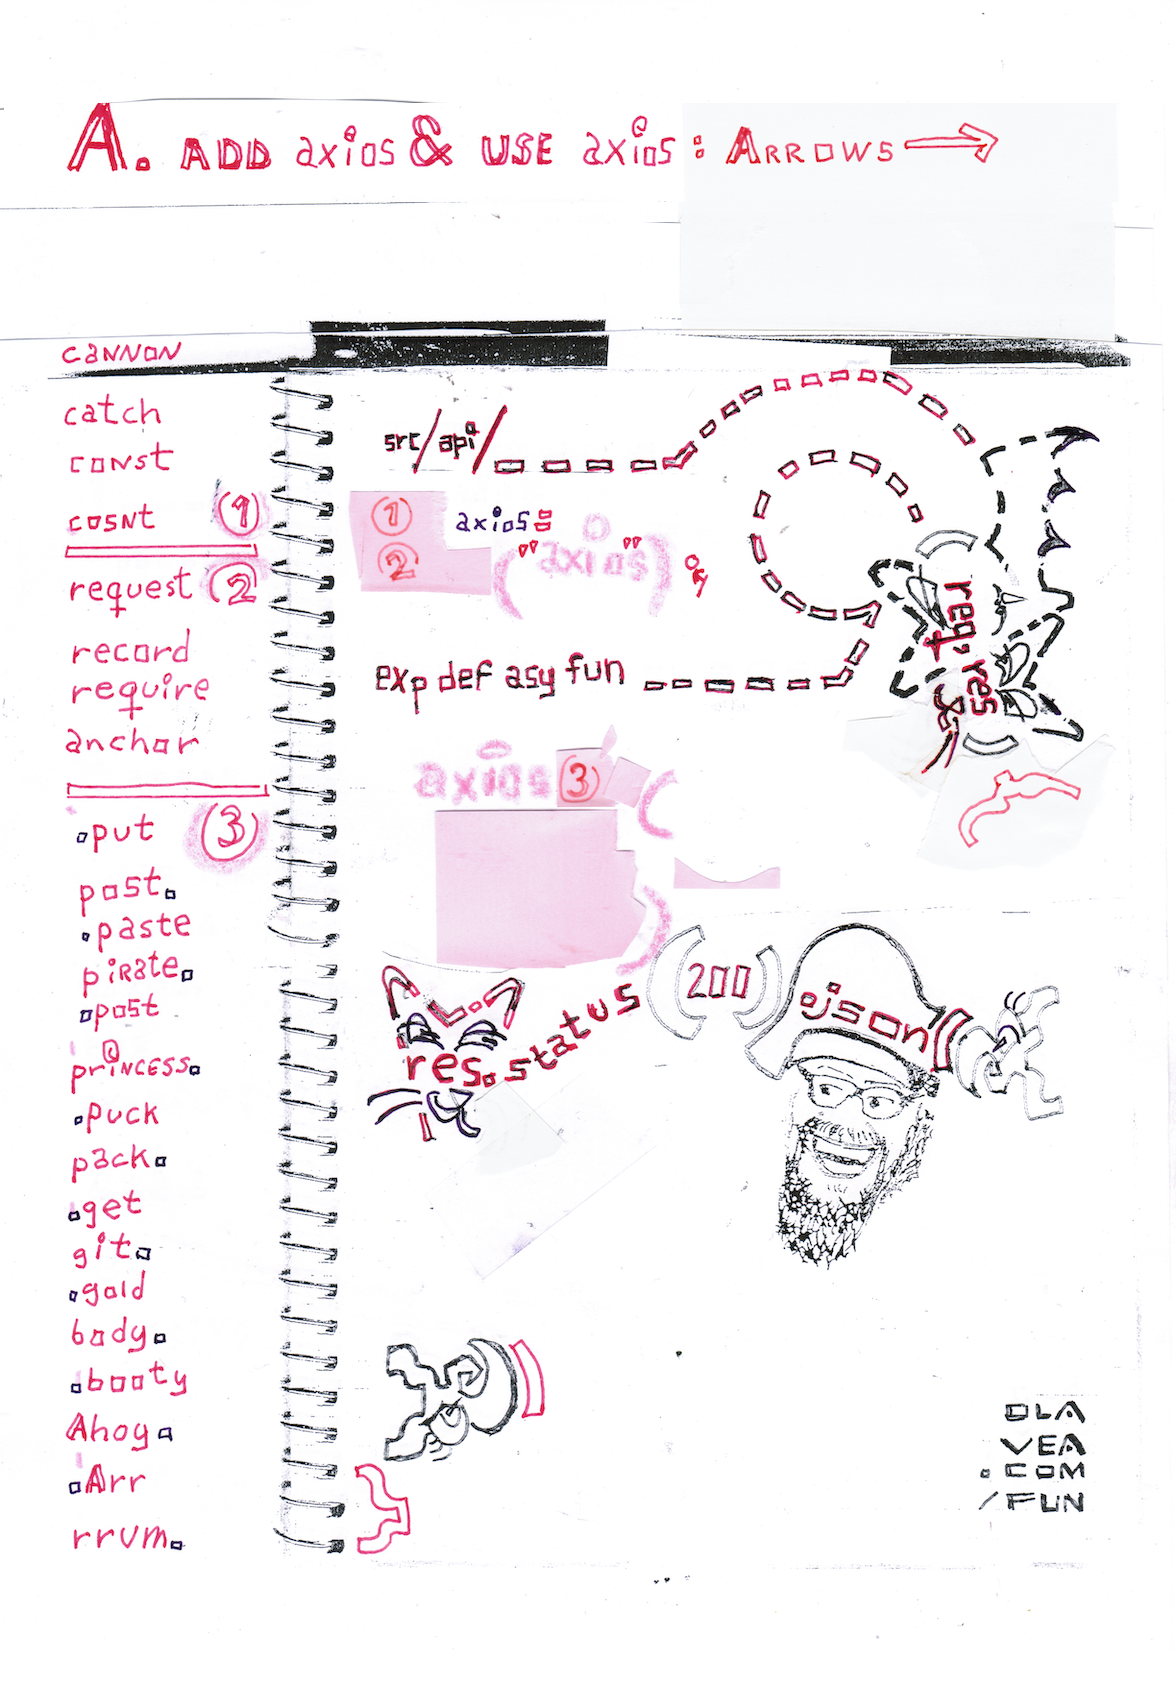 A. ADD axios & USE axios: ARROWS
CANNON
catch
const
cosnt (1)
request (2)
record
require
anchor
.put (3)
post.
.paste
piRate.
.post
prINCESS.
.puck
pack.
.get
git.
.gold
body.
.booty
Ahoy.
.Arr
rrum.
src/api/
(1) axios=
(2) ("axios");
exp def asy fun
req, res
{
axios (3) (
)
res.status(200).json({
})
}
OLA
VEA
.COM
/FUN